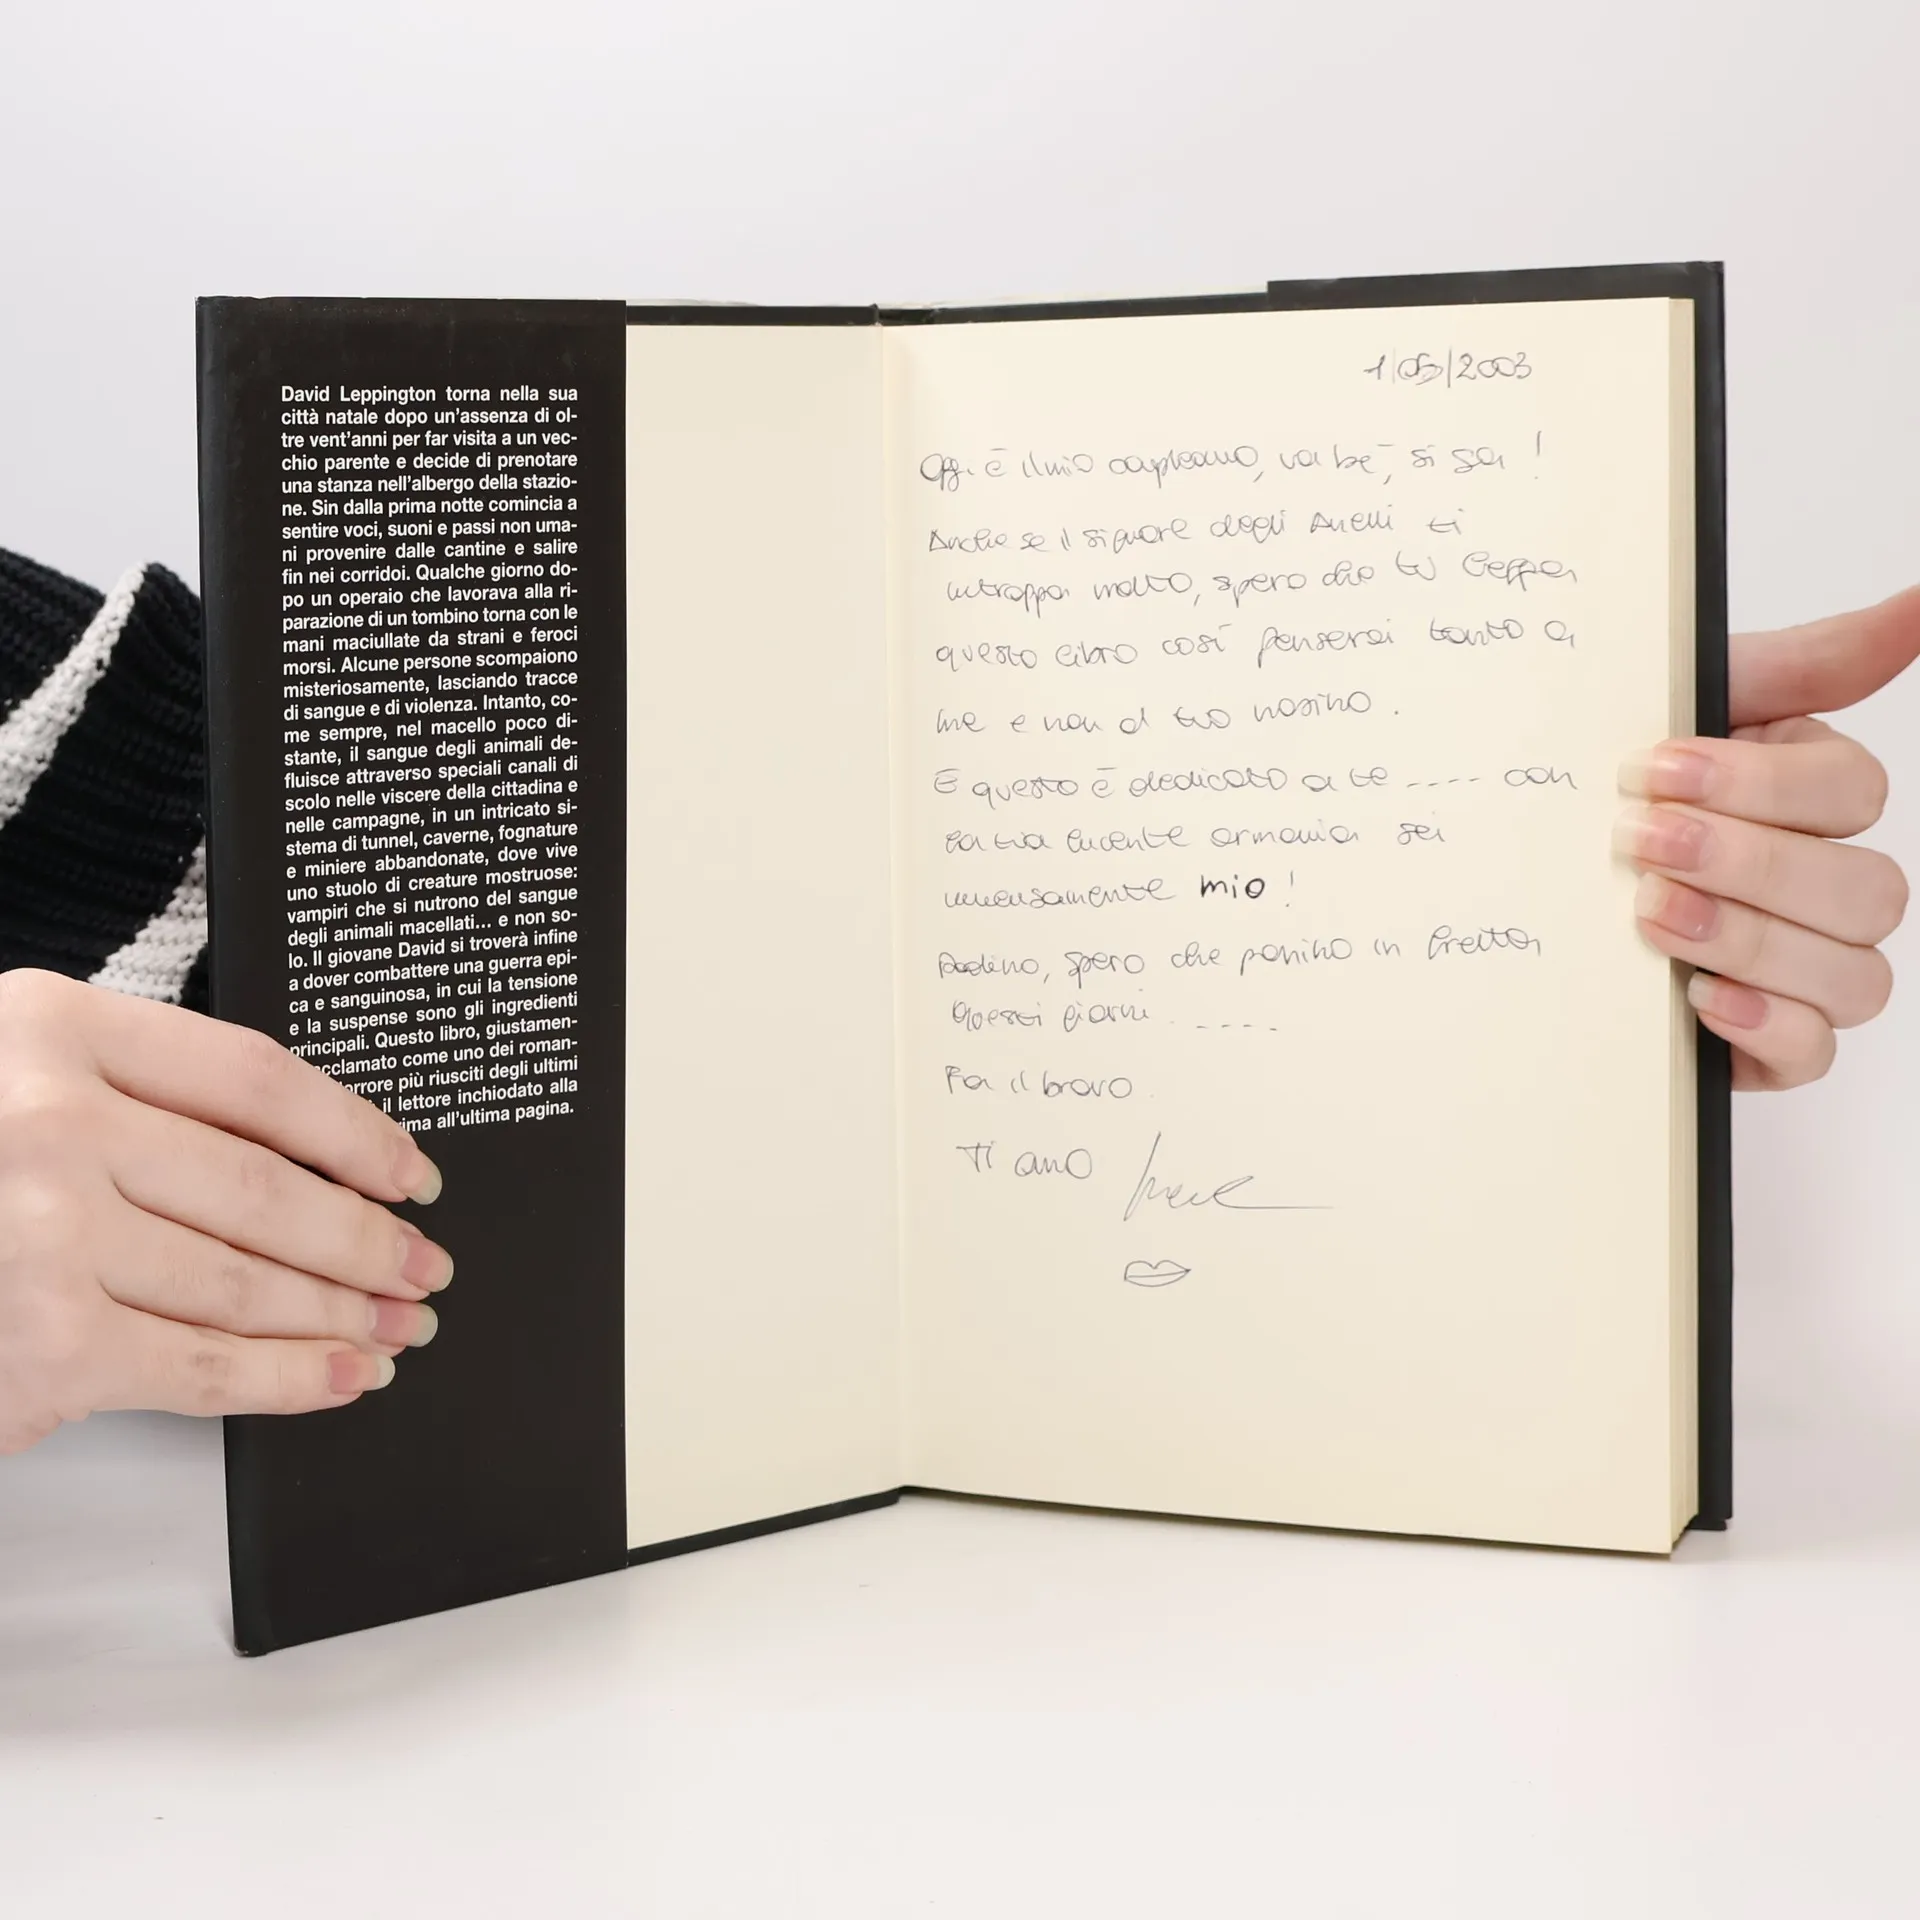 David Leppington torna nella sua
città natale dopo un'assenza di ol-
tre vent'anni per far visita a un vec-
chio parente e decide di prenotare
una stanza nell'albergo della stazio-
ne. Sin dalla prima notte comincia a
sentire voci, suoni e passi non uma-
ni provenire dalle cantine e salire
fin nei corridoi. Qualche giorno do-
po un operaio che lavorava alla ri-
parazione di un tombino torna con le
mani maciullate da strani e feroci
morsi. Alcune persone scompaiono
misteriosamente, lasciando tracce
di sangue e di violenza. Intanto, co-
me sempre, nel macello poco di-
stante, il sangue degli animali de-
fluisce attraverso speciali canali di
scolo nelle viscere della cittadina e
nelle campagne, in un intricato si-
stema di tunnel, caverne, fognature
e miniere abbandonate, dove vive
uno stuolo di creature mostruose:
vampiri che si nutrono del sangue
degli animali macellati... e non so-
lo. Il giovane David si troverà infine
a dover combattere una guerra epi-
ca e sanguinosa, in cui la tensione
e la suspense sono gli ingredienti
principali. Questo libro, giustamen-
cclamato come uno dei roman-
orrore più riusciti degli ultimi
il lettore inchiodato alla
ima all'ultima pagina.
1/05/2003
Oggi è il mio compleanno, va be', si sa!
Anche se il signore degli Anelli ti
intrippa molto, spero che tu legga
questo libro così penserai tanto a
me e non al tuo nasino.
E questo è dedicato a te .... con
la tua lucente armonia sei
immensamente mio!
spero che in fretta
questi giorni .....
Fa il bravo
Ti amo